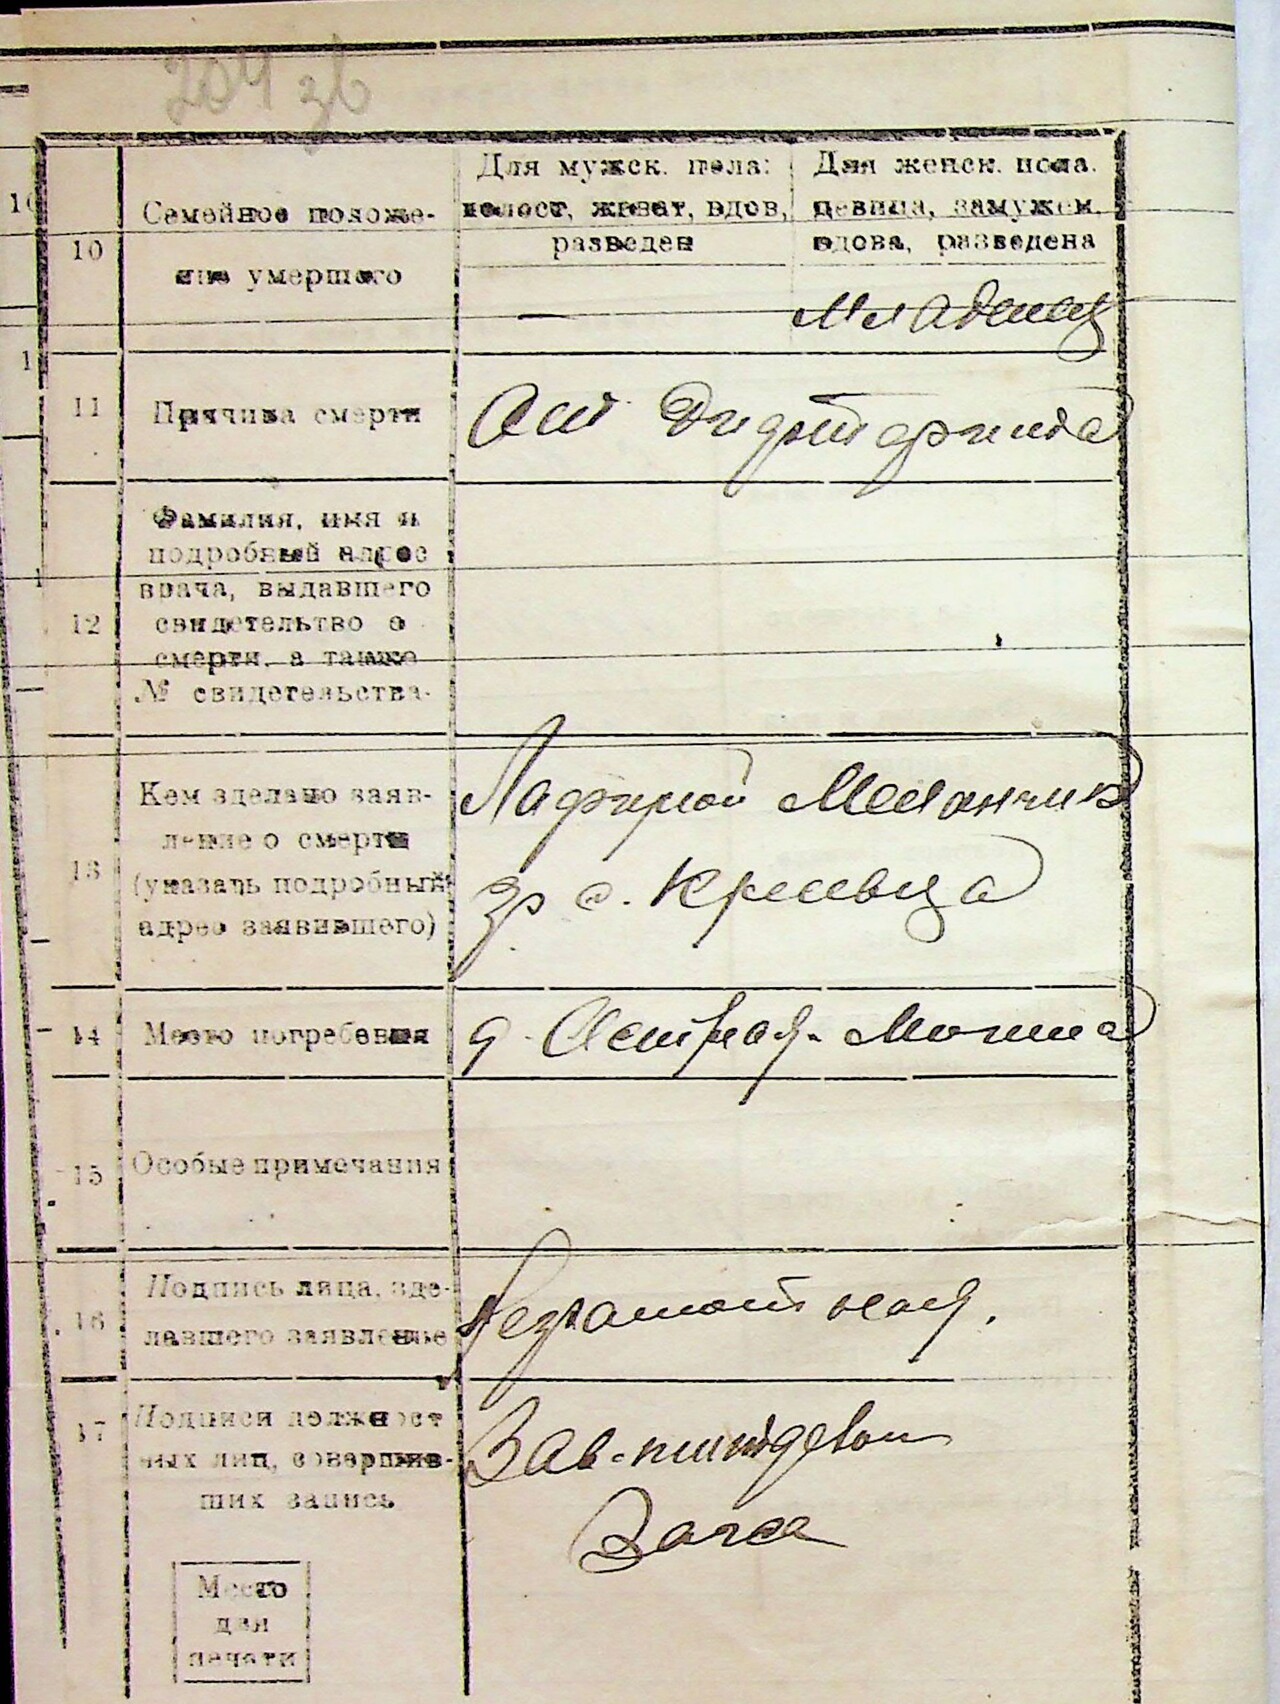 204 зв
10
Семейное положе-
ние умершего
Для мужск. пола:
холост, женат, вдов,
разведен
Для женск. пола.
девица, замужем,
вдова, разведена
—
Младенец
11
Причина смерти
От
12
Фамилия, имя и
подробный адрес
врача, выдавшего
свидетельтво о
смерти, а также
№ свидетельства.
13
Кем зделано заяв-
ление о смерти
(указать подробный
адрес заявившего)
гр с.
14
Место погребения
д. Остра Могила
15
Особые примечания
16
Подпись лица, зде-
лавшего заявленье
Неграмотная.
17
Подписи должност
ных лиц, совершив-
ших запись
Зав.
Загса
Место
для
печати